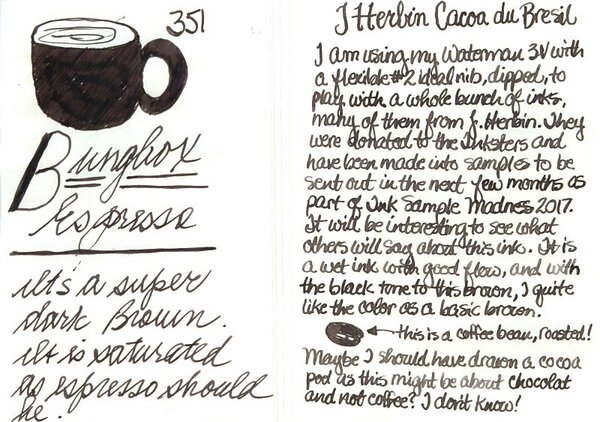 351
Bungbox
Espresso
it's a super
dark Brown.
it is saturated
as espresso should
be.
J Herbin Cacoa du Bresil
I am using my Waterman 3V with
a flexible #2 ideal nib, dipped, to
play with a whole bunch of inks,
many of them from J. Herbin. They
were donated to the Inksters and
have been made into samples to be
sent out in the next few months as
part of Ink Sample Madnes 2017.
It will be interesting to see what
others will say about this ink. It is
a wet ink with good flow, and with
the black tone to this brown, I quite
like the color as a basic brown.
this is a coffee bean, roasted!
Maybe I should have drawn a cocoa
pod as this might be about chocolat
and not coffee? I don't know!